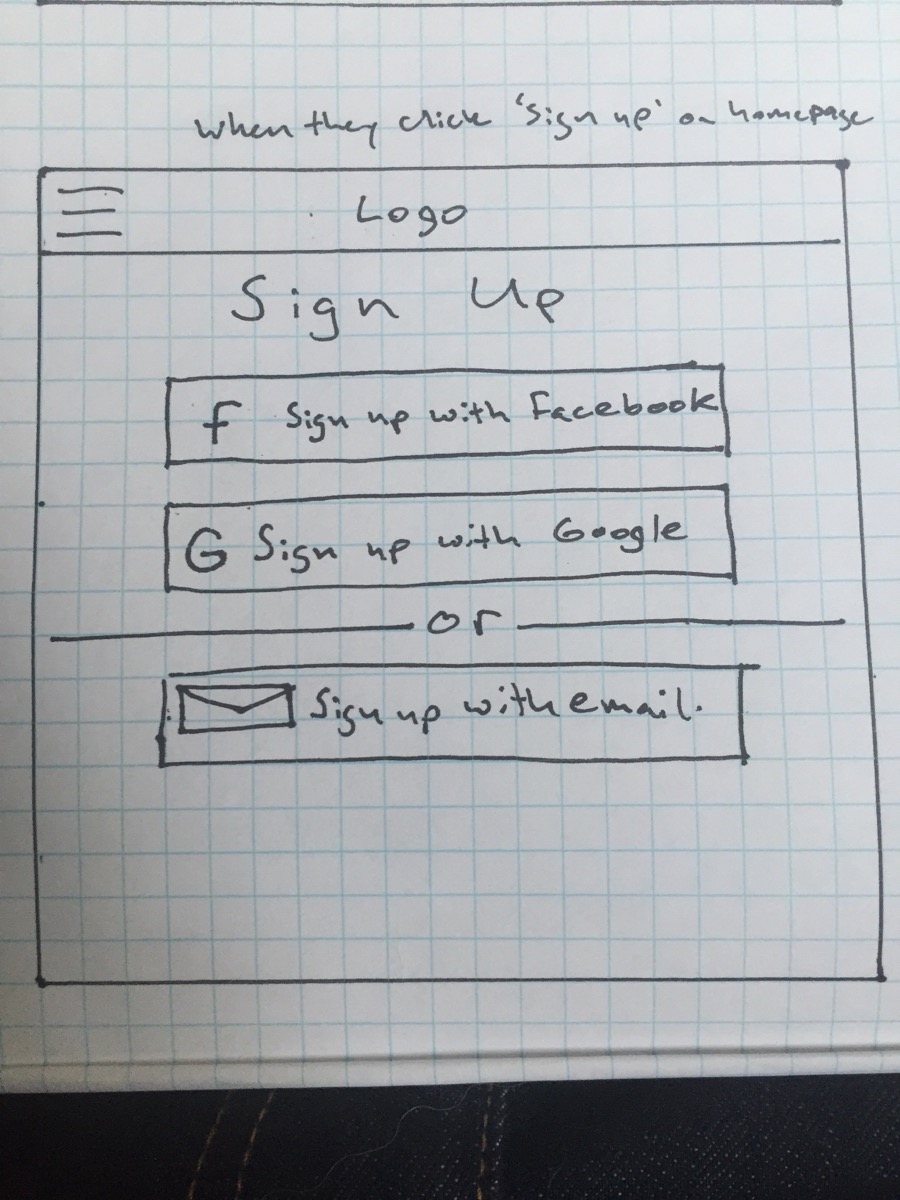 When they click 'sign up' on homepage
Logo
Sign Up
f Sign up with Facebook
G Sign up with Google
or
Sign up with email.